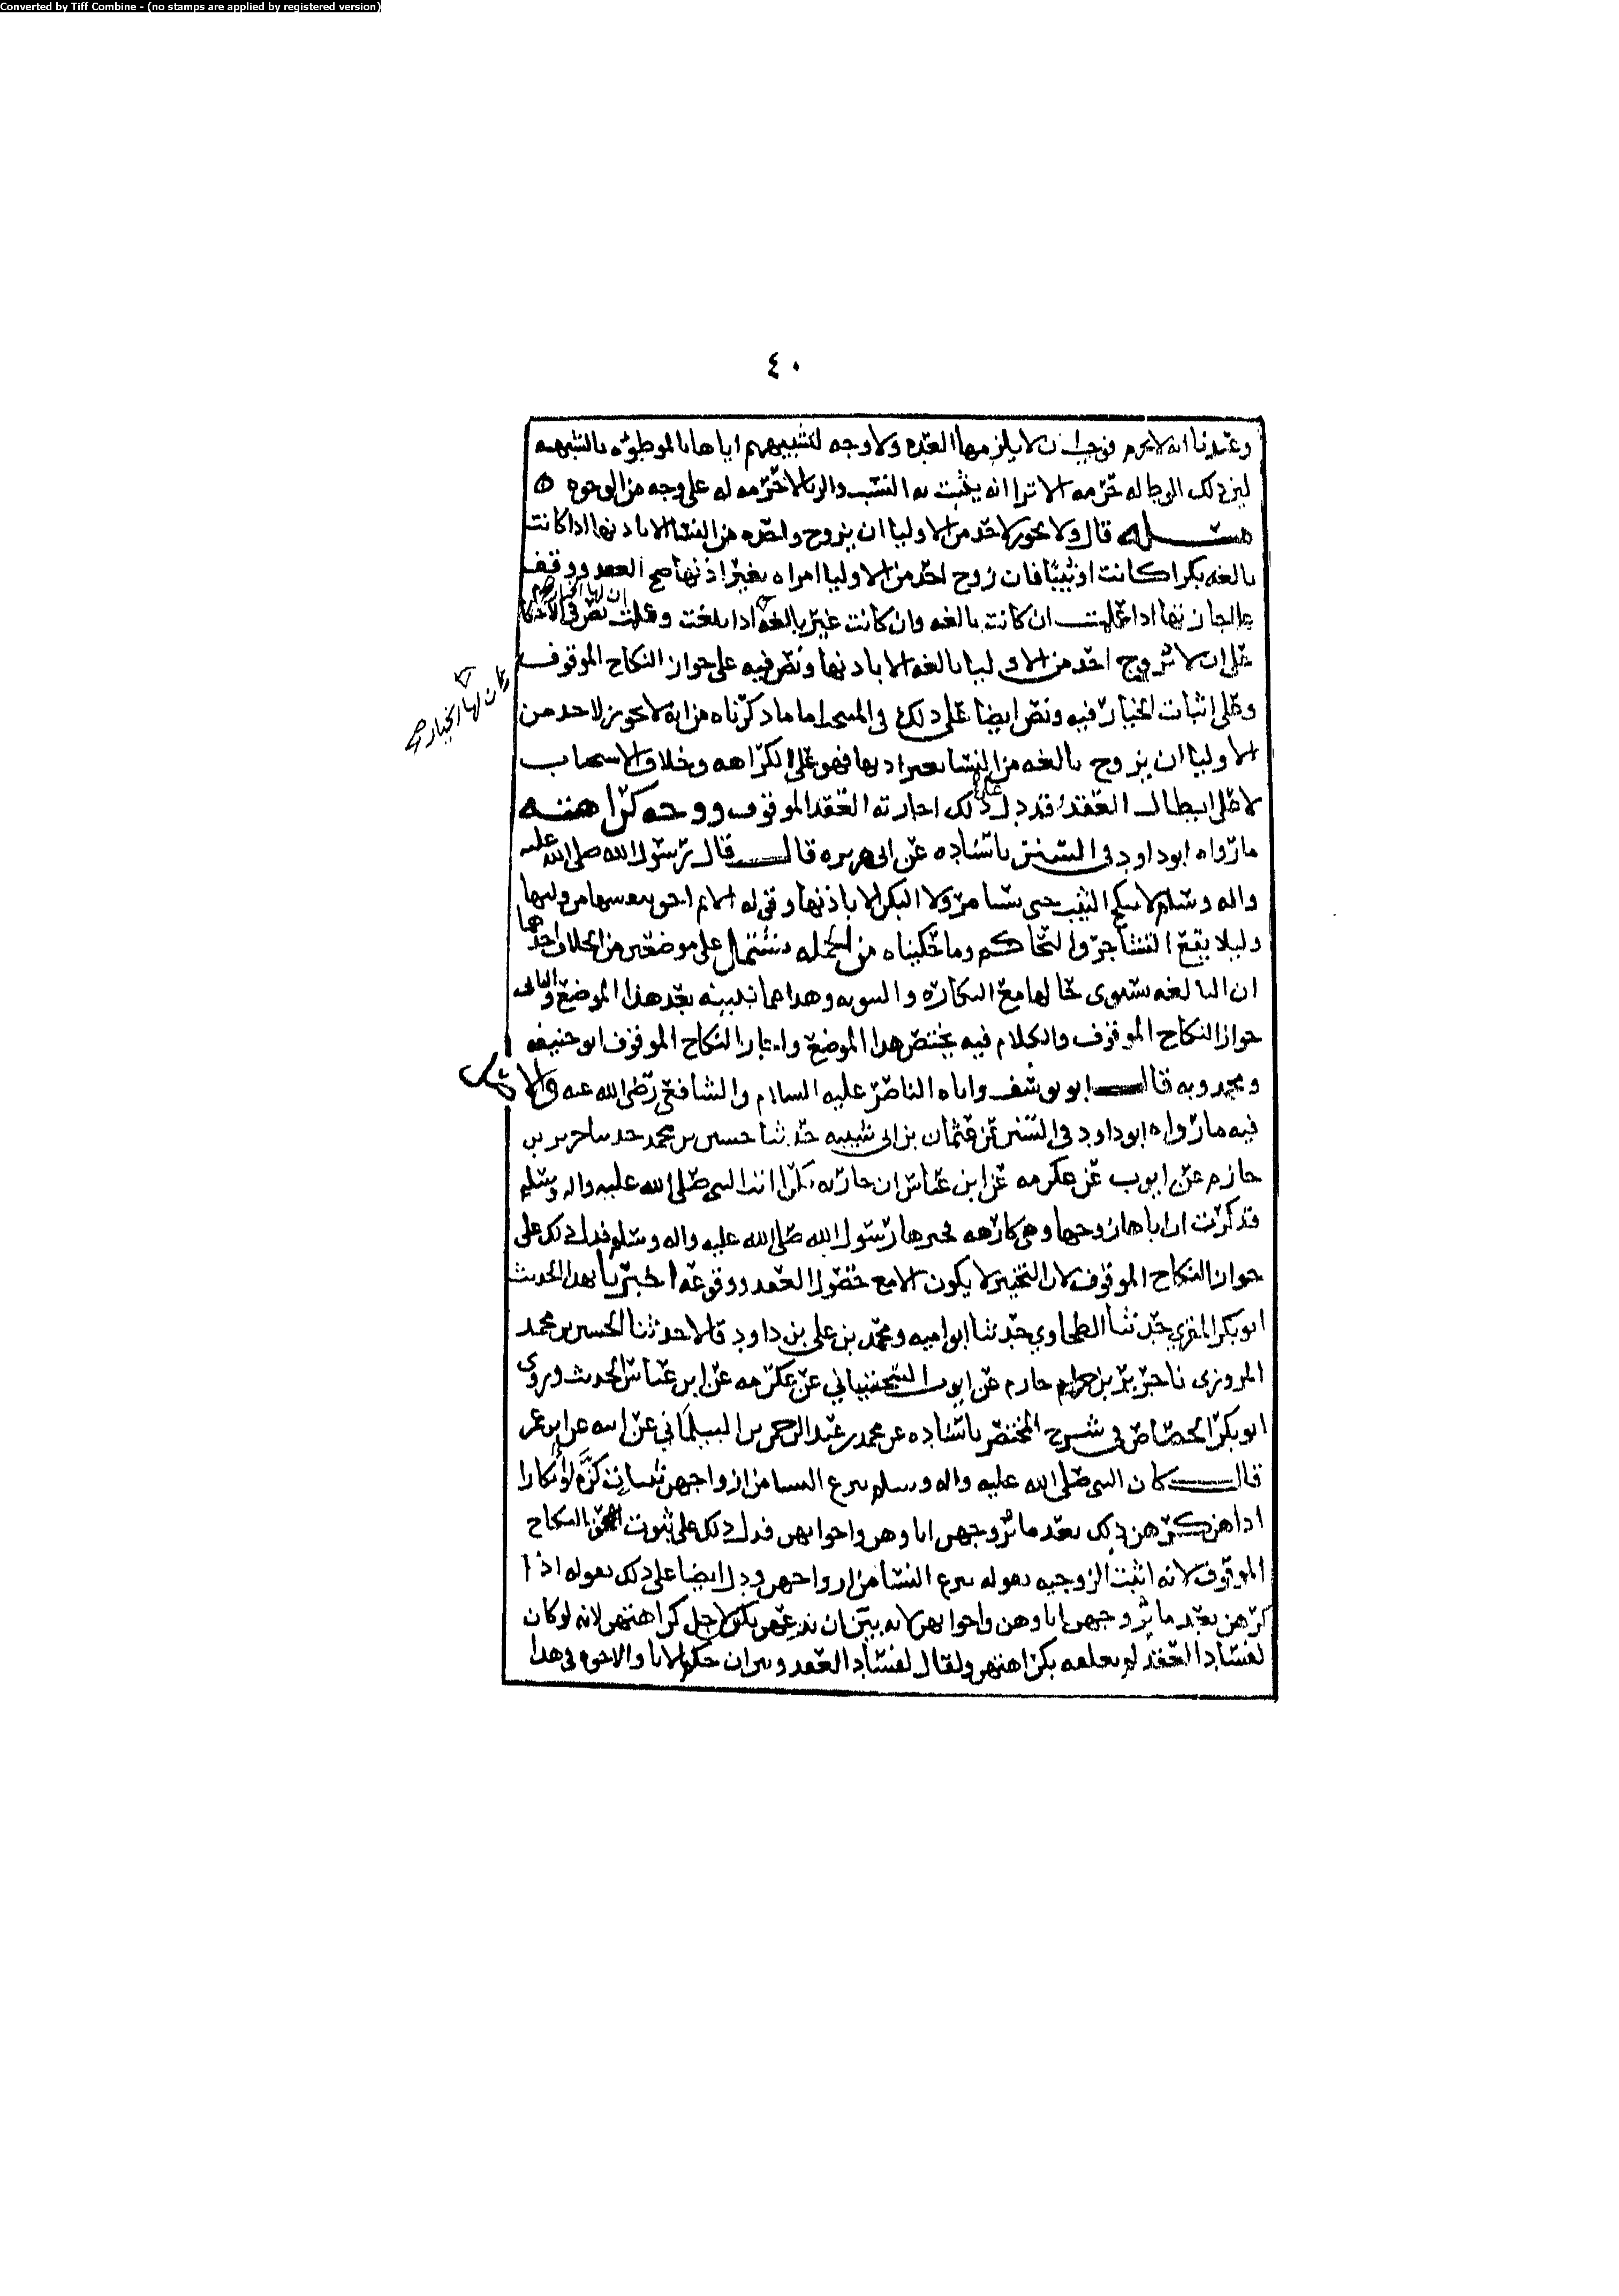 Converted by Tiff Combine - (no stamps are applied by registered version)
٤٠
وعندنا انه لا يحرم فوجب ان لا يلزمها العدة ولا وجه لتشبيههم اياها بالموطؤه بالشبهه
لان ذلك الوطا له حرمه الا ترا انه يثبت به النسب والزنا لا حرمه له على وجه من الوجوه ه
مسله قال ولا يجوز لاحد من الاوليا ان يزوج واحده من النسا الا باذنها اذا كانت
بالغه بكرا كانت او ثيبا فان زوج احد من الاوليا امراه بغير اذنها صح العقد ووقف
على اجازتها اذا علمت ان كانت بالغه وان كانت غير بالغه اذا بلغت وعلمت نص في الاحكام
ان لها الخيار صح
على ان لا يزوج احد من الاوليا بالغه الا باذنها ونص فيه على جواز النكاح الموقوف
ان لها الخيار صح
وعلى اثبات الخيار فيه ونص ايضا على ذلك في المنتخب اما ما ذكرناه من انه لا يجوز لاحد من
الاوليا ان يزوج بالغه من النسا بغير اذنها فهو على الكراهه وخلاف الاستحباب
لا على ابطال العقد فقد دل على ذلك اجازته العقد الموقوف ووجه كراهته
ما رواه ابو داود في السنن باسناده عن ابي هريره قال قال رسول الله صلى الله عليه
واله وسلم لا تنكح الثيب حتى تستامر ولا البكر الا باذنها وقوله الايم احق بنفسها من وليها
وليلا يقع التشاجر والتحاكم وما حكيناه من الجمله يشتمل على موضعين من الخلاف احدهما
ان البالغه يستوي حالها مع البكاره والثيوبه وهذا مما نبينه بعد هذا الموضع والثاني
جواز النكاح الموقوف والكلام فيه يختص هذا الموضع واجاز النكاح الموقوف ابو حنيفه
ومحمد وبه قال ابو يوسف واباه الناصر عليه السلام والشافعي رضي الله عنه والاصل
فيه ما رواه ابو داود في السنن عن عثمان بن ابي شيبه حدثنا حسين بن محمد حدثنا جرير بن
حازم عن ايوب عن عكرمه عن ابن عباس ان جاريه بكرا اتت النبي صلى الله عليه واله وسلم
فذكرت ان اباها زوجها وهي كارهه فخيرها رسول الله صلى الله عليه واله وسلم فدل ذلك على
جواز النكاح الموقوف لان التخيير لا يكون الا مع حصول العقد ووقوعه اخبرنا بهذا الحديث
ابو بكر المقري حدثنا الطحاوي حدثنا ابو اميه ومحمد بن علي بن داود قالا حدثنا الحسين بن محمد
المروزي نا جرير بن حازم عن ايوب السختياني عن عكرمه عن ابن عباس الحديث وروى
ابو بكر الجصاص في شرح المختصر باسناده عن محمد بن عبد الرحمن بن البيلماني عن ابيه عن ابن عمر
قال كان النبي صلى الله عليه واله وسلم ينزع النسا من ازواجهن ثيبات كن او ابكارا
اذا هن كرهن ذلك بعد ما يزوجهن اباوهن واخوانهن فدل ذلك على ثبوت النكاح
الموقوف لانه اثبت الزوجيه بقوله ينزع النسا من ازواجهن ودل ايضا على ذلك بقوله اذا
كرهن بعد ما يزوجهن اباوهن واخوانهن لانه بين ان نزعهن يكون لاجل كراهتهن لانه لو كان
لفساد العقد لم يعلقه بكراهتهن ولقال لفساد العقد وبين ان حكم الابا والاخوه في هذا